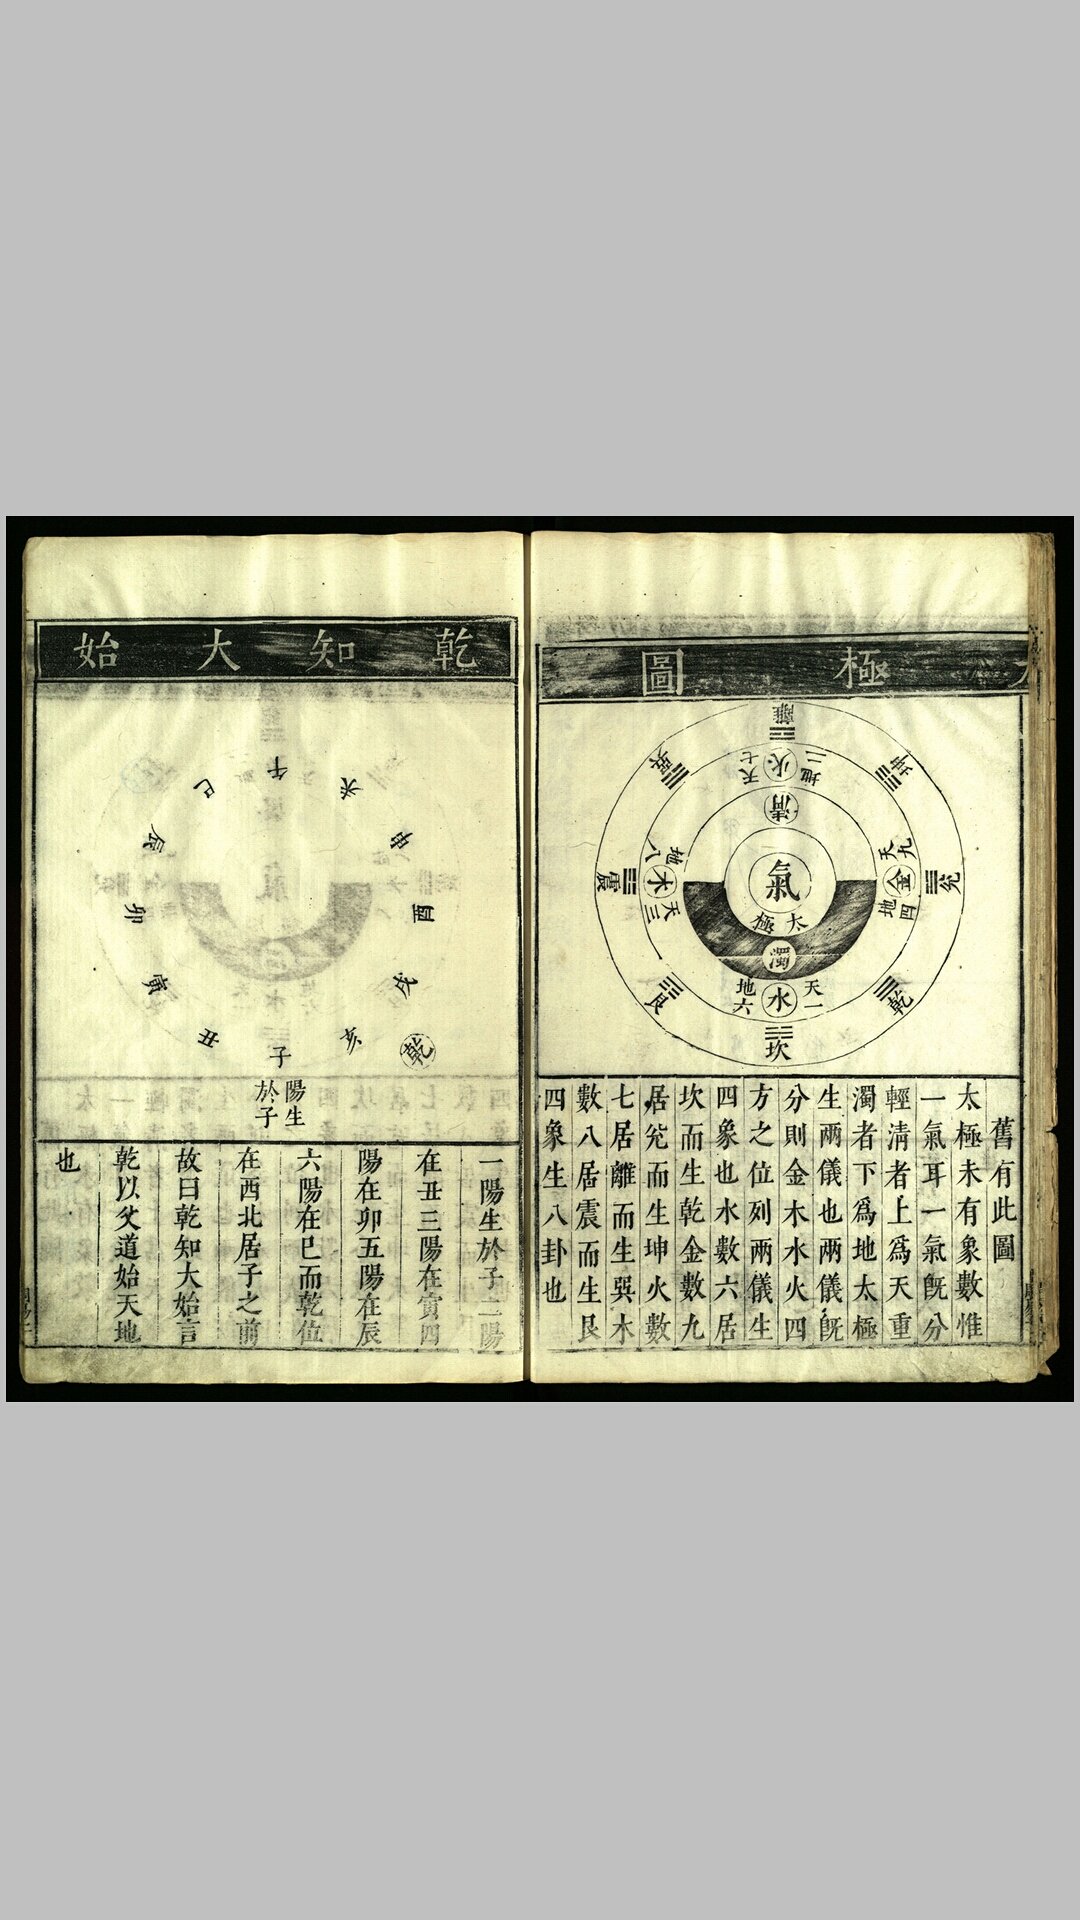 極圖
離
坤
兌
乾
坎
艮
震
巽
地二
火
天七
清
天九
金
地四
地八
木
天三
氣
太極
濁
天一
水
地六
舊有此圖
太極未有象數惟
一氣耳一氣旣分
輕清者上爲天重
濁者下爲地太極
生兩儀也兩儀旣
分則金木水火四
方之位列兩儀生
四象也水數六居
坎而生乾金數九
居兌而生坤火數
七居離而生巽木
數八居震而生艮
四象生八卦也
乾知大始
午
未
申
酉
戌
亥
子
丑
寅
卯
辰
巳
乾
陽生
於子
一陽生於子二陽
在丑三陽在寅四
陽在卯五陽在辰
六陽在巳而乾位
在西北居子之前
故曰乾知大始言
乾以父道始天地
也